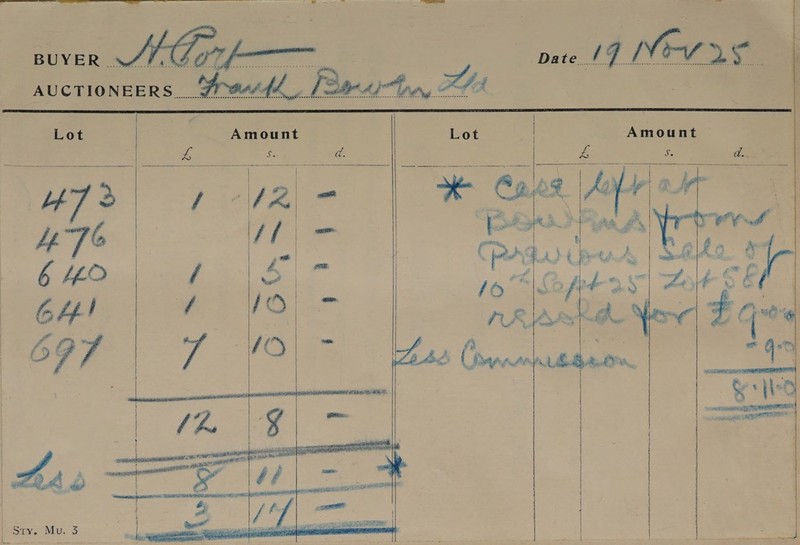 BUYER H. Port Date 19 Nov 25
AUCTIONEERS Frank Bowen Ltd
Lot Amount Lot Amount
£ s. d. £ s. d.
473 1 12 -
476 11 -
640 1 5 -
641 1 10 -
697 7 10 -
12 8 -
Less 8 11 - *
3 17 -
* Case left at
Bowens from
Previous Sale of
10th Sept 25 Lot 581
resold for £9-0-0
Less Commission - 9-0
8-11-0
STY. MU. 3